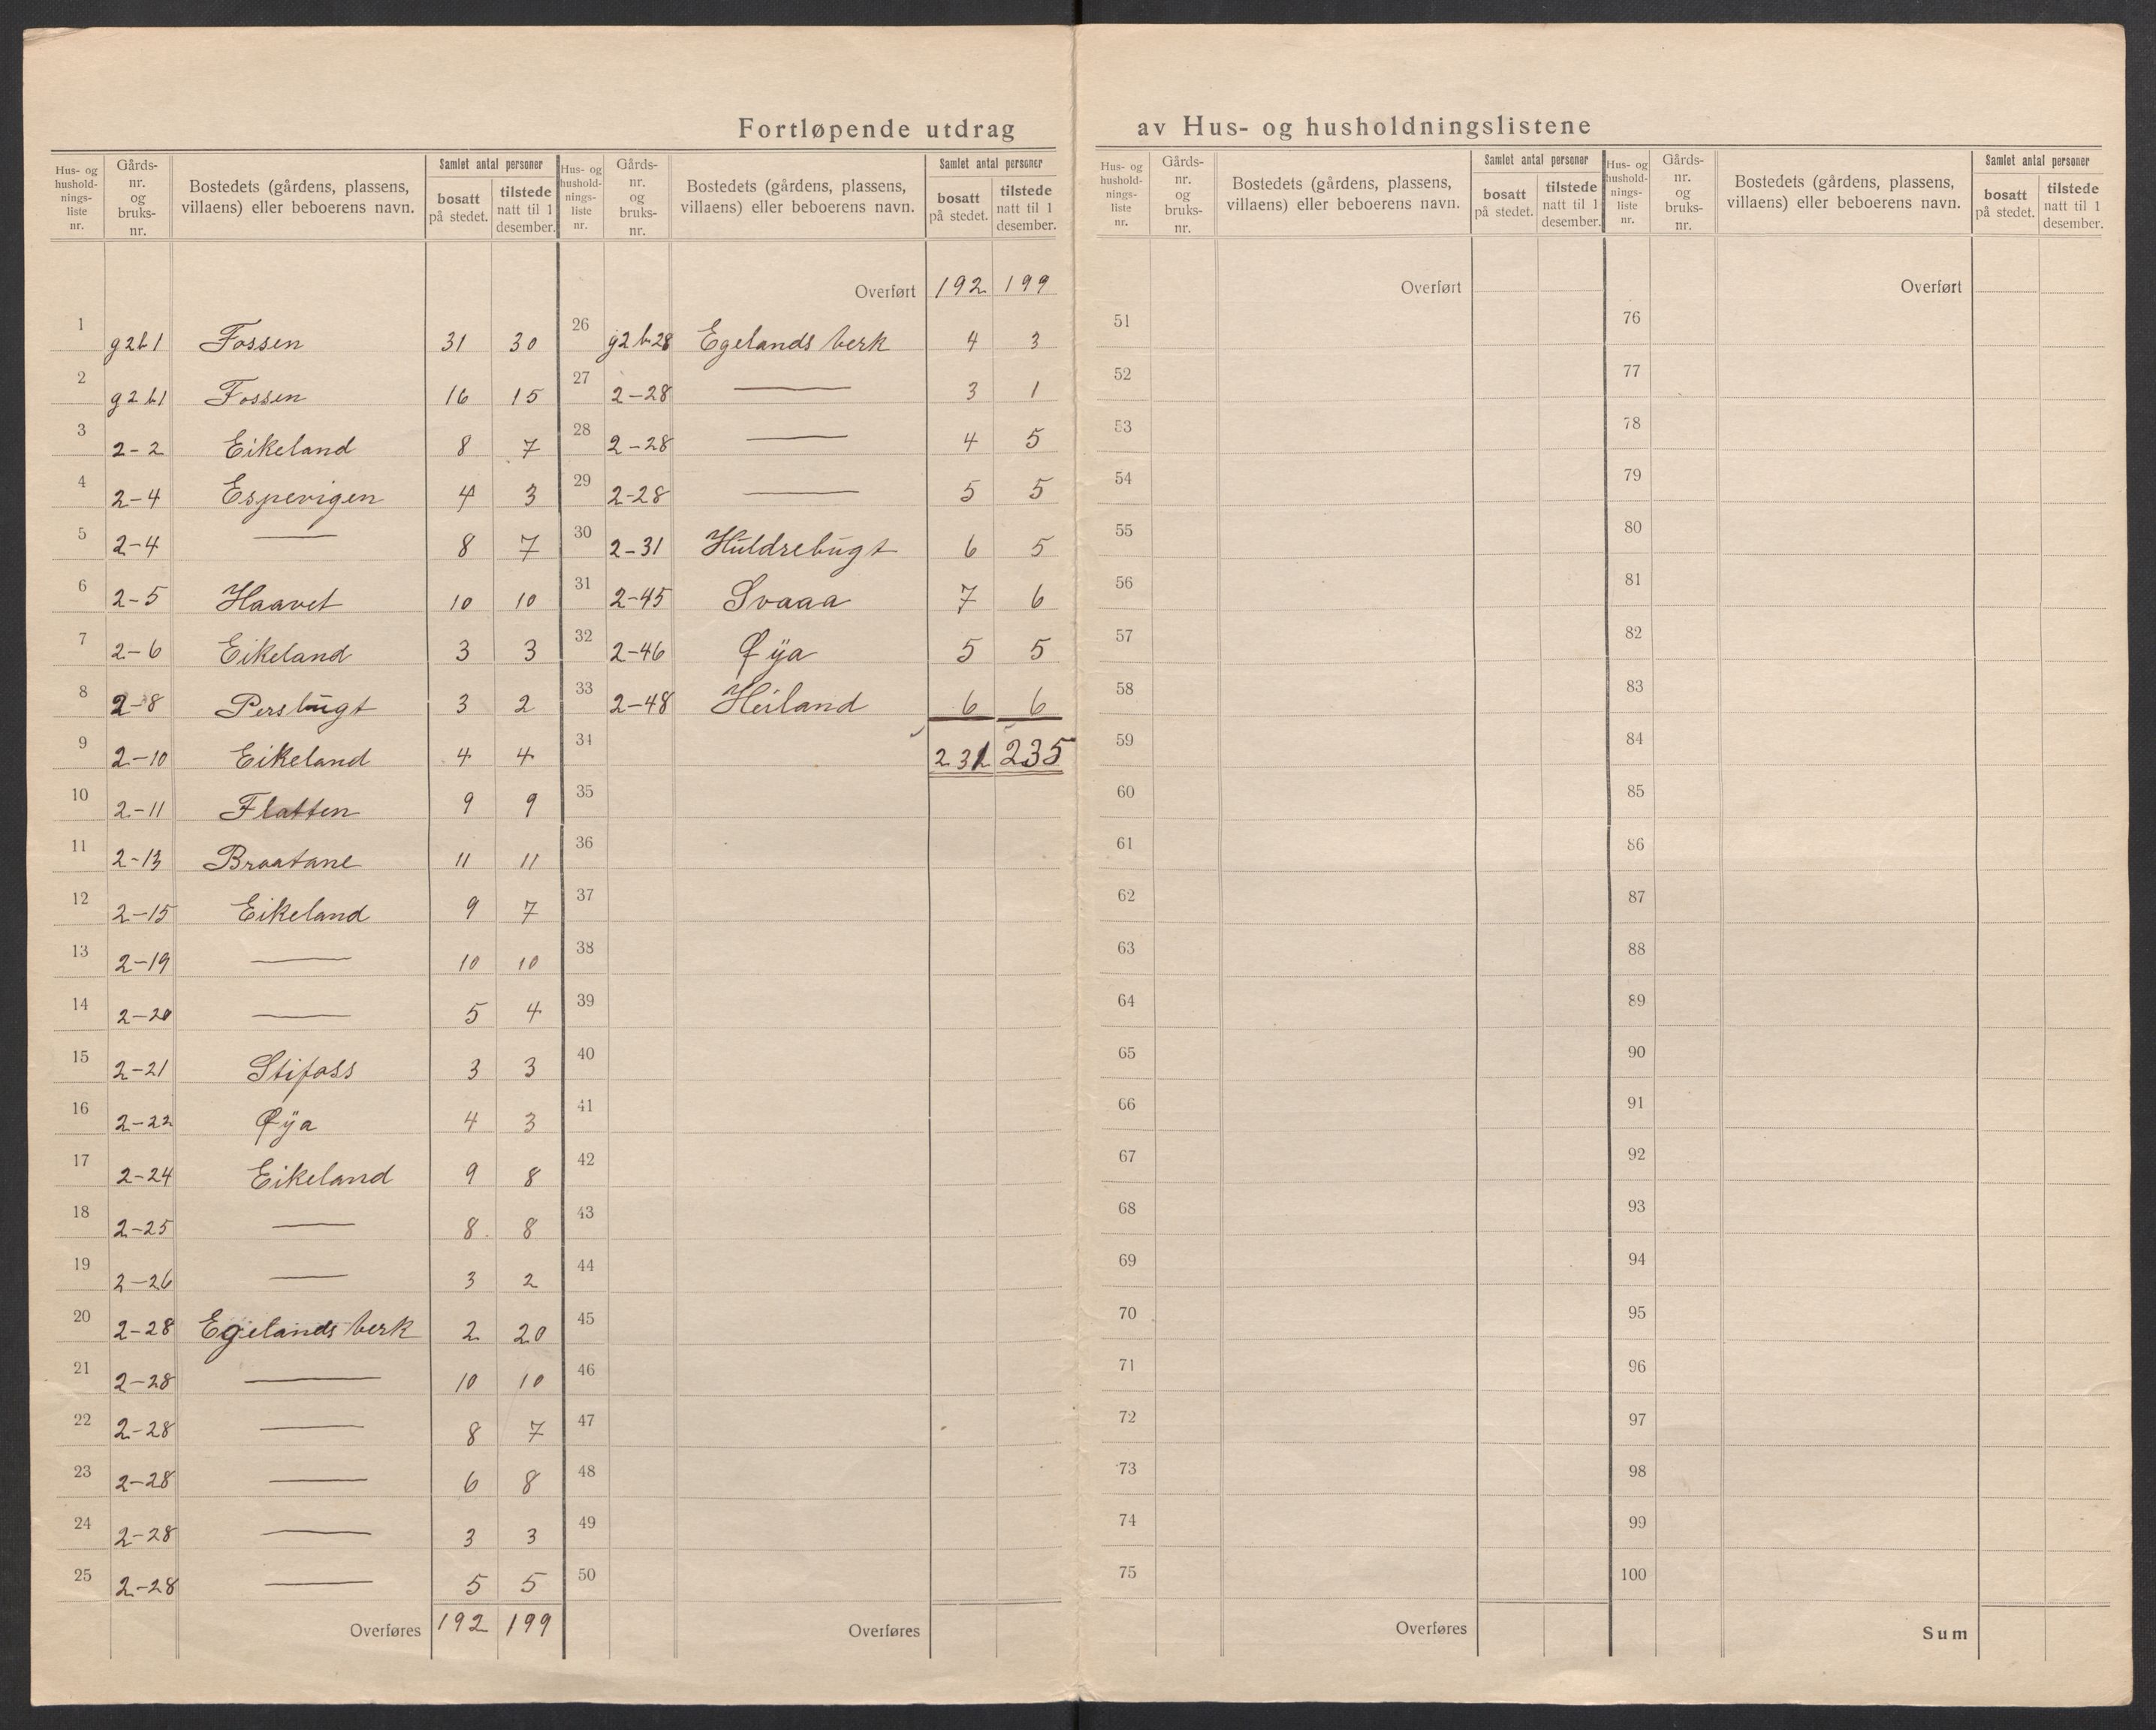 Fortløpende utdrag av Hus- og husholdningslistene
Hus- og hushold- nings- liste nr. Gårds- nr. og bruks- nr. Bostedets (gårdens, plassens, villaens) eller beboerens navn. Samlet antal personer bosatt på stedet. tilstede natt til 1 desember.
1 g2b1 Fossen 31 30
2 g2b1 Fossen 16 15
3 2-2 Eikeland 8 7
4 2-4 Espevigen 4 3
5 2-4 — 8 7
6 2-5 Haavet 10 10
7 2-6 Eikeland 3 3
8 2-8 Persbugt 3 2
9 2-10 Eikeland 4 4
10 2-11 Flatten 9 9
11 2-13 Braatane 11 11
12 2-15 Eikeland 9 7
13 2-19 — 10 10
14 2-20 — 5 4
15 2-21 Stifoss 3 3
16 2-22 Øya 4 3
17 2-24 Eikeland 9 8
18 2-25 — 8 8
19 2-26 — 3 2
20 2-28 Egelands verk 2 20
21 2-28 — 10 10
22 2-28 — 8 7
23 2-28 — 6 8
24 2-28 — 3 3
25 2-28 — 5 5
Overføres 192 199
Hus- og hushold- nings- liste nr. Gårds- nr. og bruks- nr. Bostedets (gårdens, plassens, villaens) eller beboerens navn. Samlet antal personer bosatt på stedet. tilstede natt til 1 desember.
Overført 192 199
26 g2b28 Egelands verk 4 3
27 2-28 — 3 1
28 2-28 — 4 5
29 2-28 — 5 5
30 2-31 Huldrebugt 6 5
31 2-45 Svaaa 7 6
32 2-46 Øya 5 5
33 2-48 Heiland 6 6
34 232 235
35
36
37
38
39
40
41
42
43
44
45
46
47
48
49
50
Overføres
Hus- og hushold- nings- liste nr. Gårds- nr. og bruks- nr. Bostedets (gårdens, plassens, villaens) eller beboerens navn. Samlet antal personer bosatt på stedet. tilstede natt til 1 desember.
Overført
51
52
53
54
55
56
57
58
59
60
61
62
63
64
65
66
67
68
69
70
71
72
73
74
75
Overføres
Hus- og hushold- nings- liste nr. Gårds- nr. og bruks- nr. Bostedets (gårdens, plassens, villaens) eller beboerens navn. Samlet antal personer bosatt på stedet. tilstede natt til 1 desember.
Overført
76
77
78
79
80
81
82
83
84
85
86
87
88
89
90
91
92
93
94
95
96
97
98
99
100
Sum